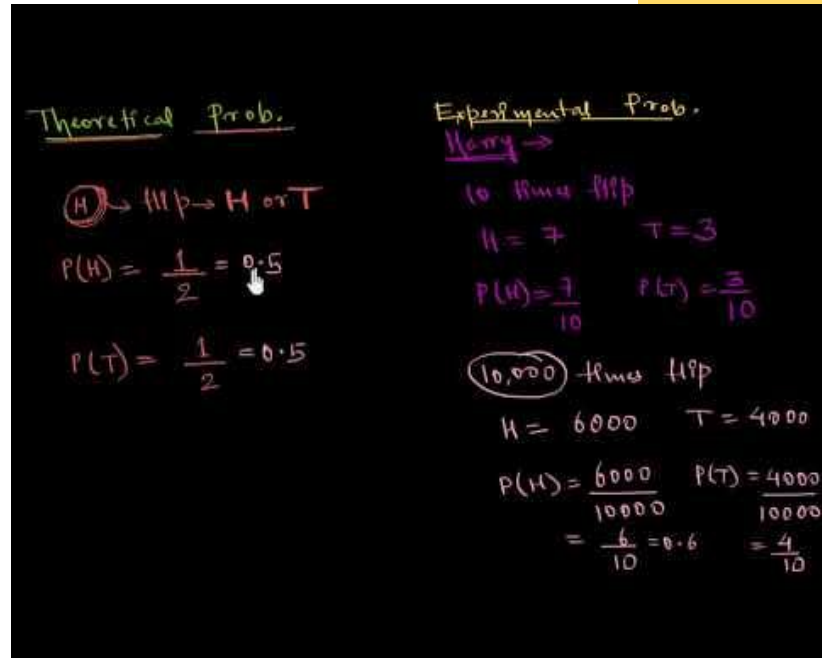 Theoretical Prob.
H → flip → H or T
P(H) = 1/2 = 0.5
P(T) = 1/2 = 0.5
Experimental Prob.
Harry →
10 times flip
H = 7 T = 3
P(H) = 7/10 P(T) = 3/10
10,000 times flip
H = 6000 T = 4000
P(H) = 6000/10000 P(T) = 4000/10000
= 6/10 = 0.6 = 4/10